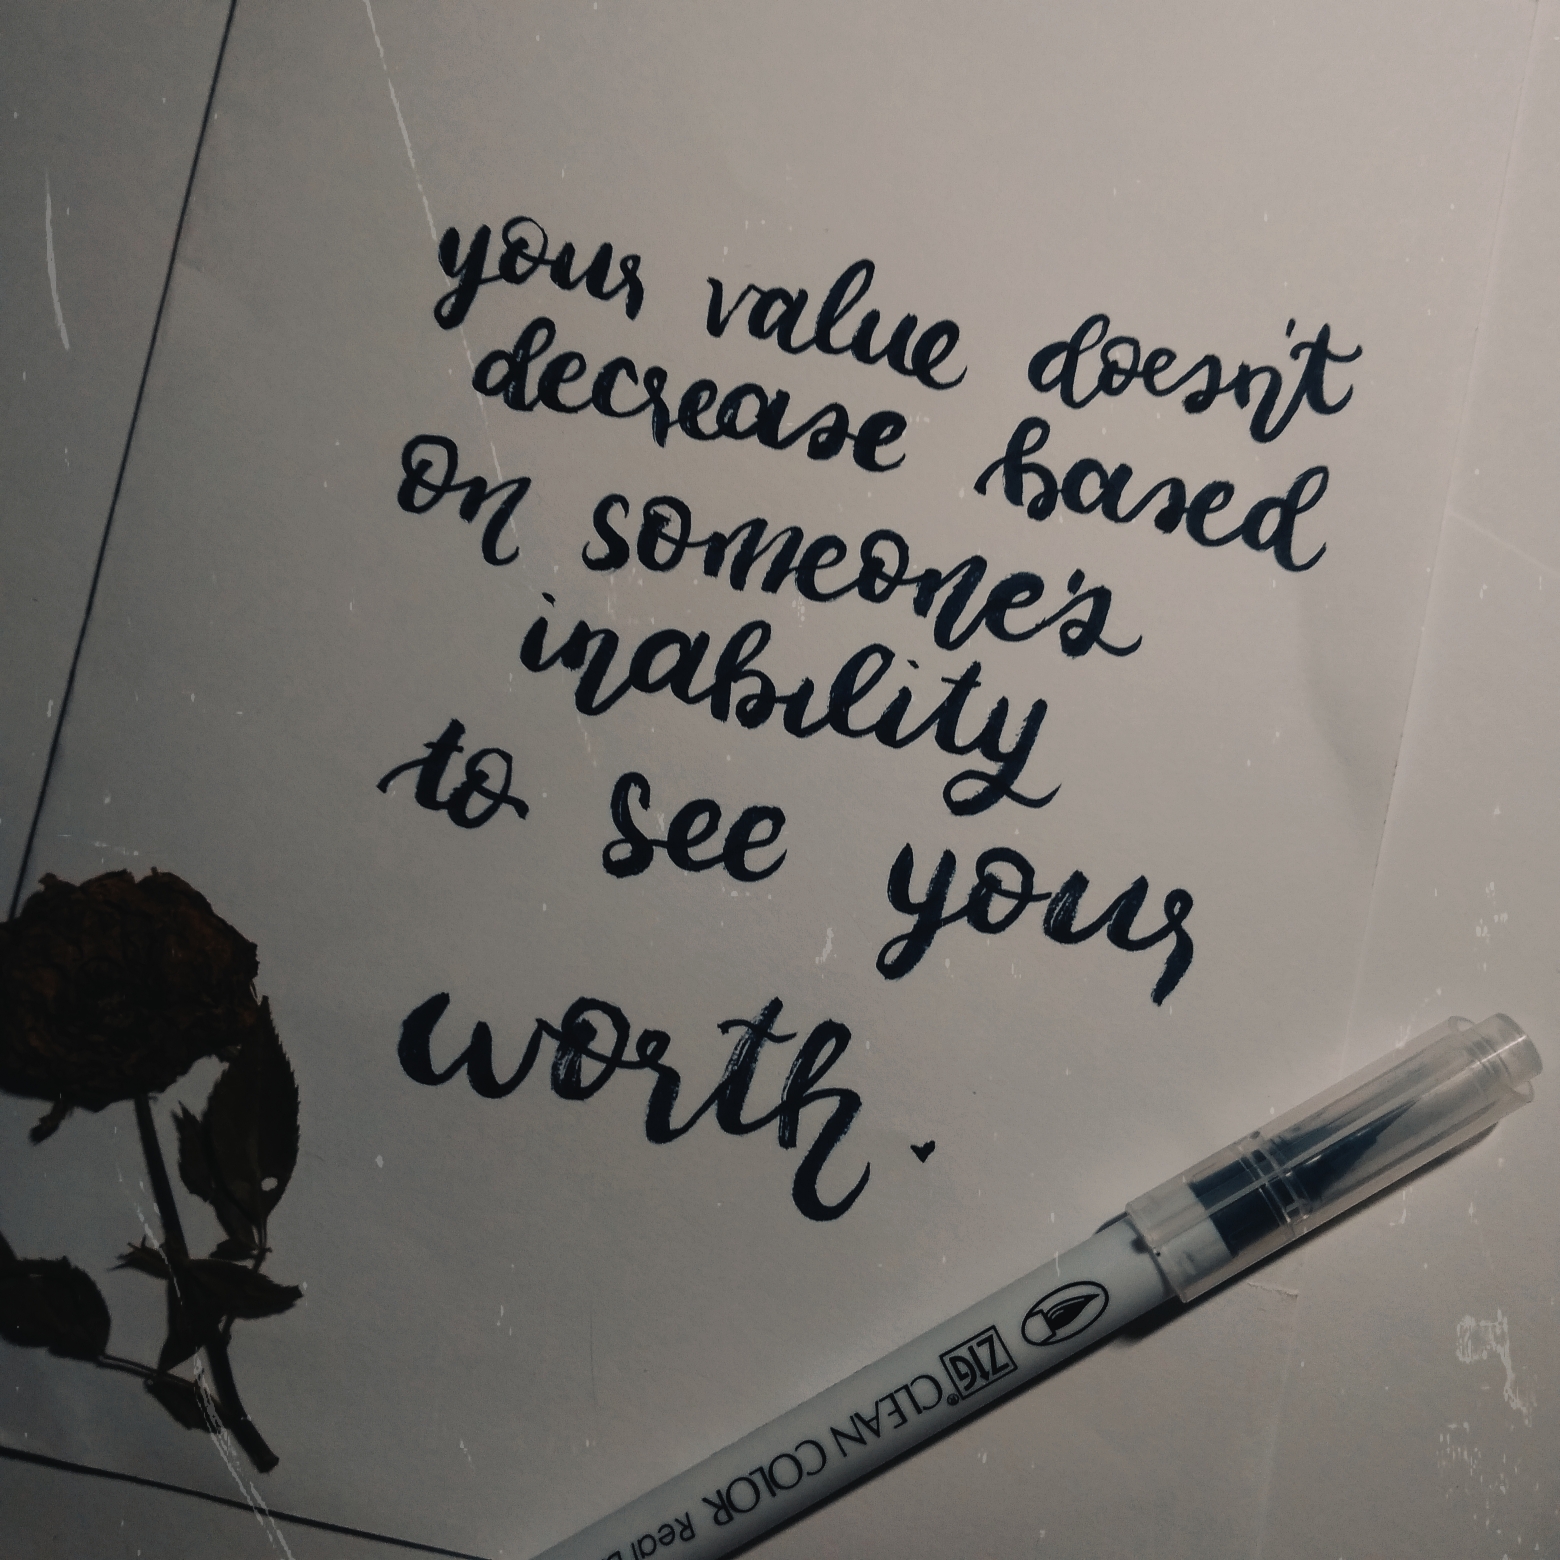 your value doesn't
decrease based
on someone's
inability
to see your
worth.
ZIG® CLEAN COLOR Real